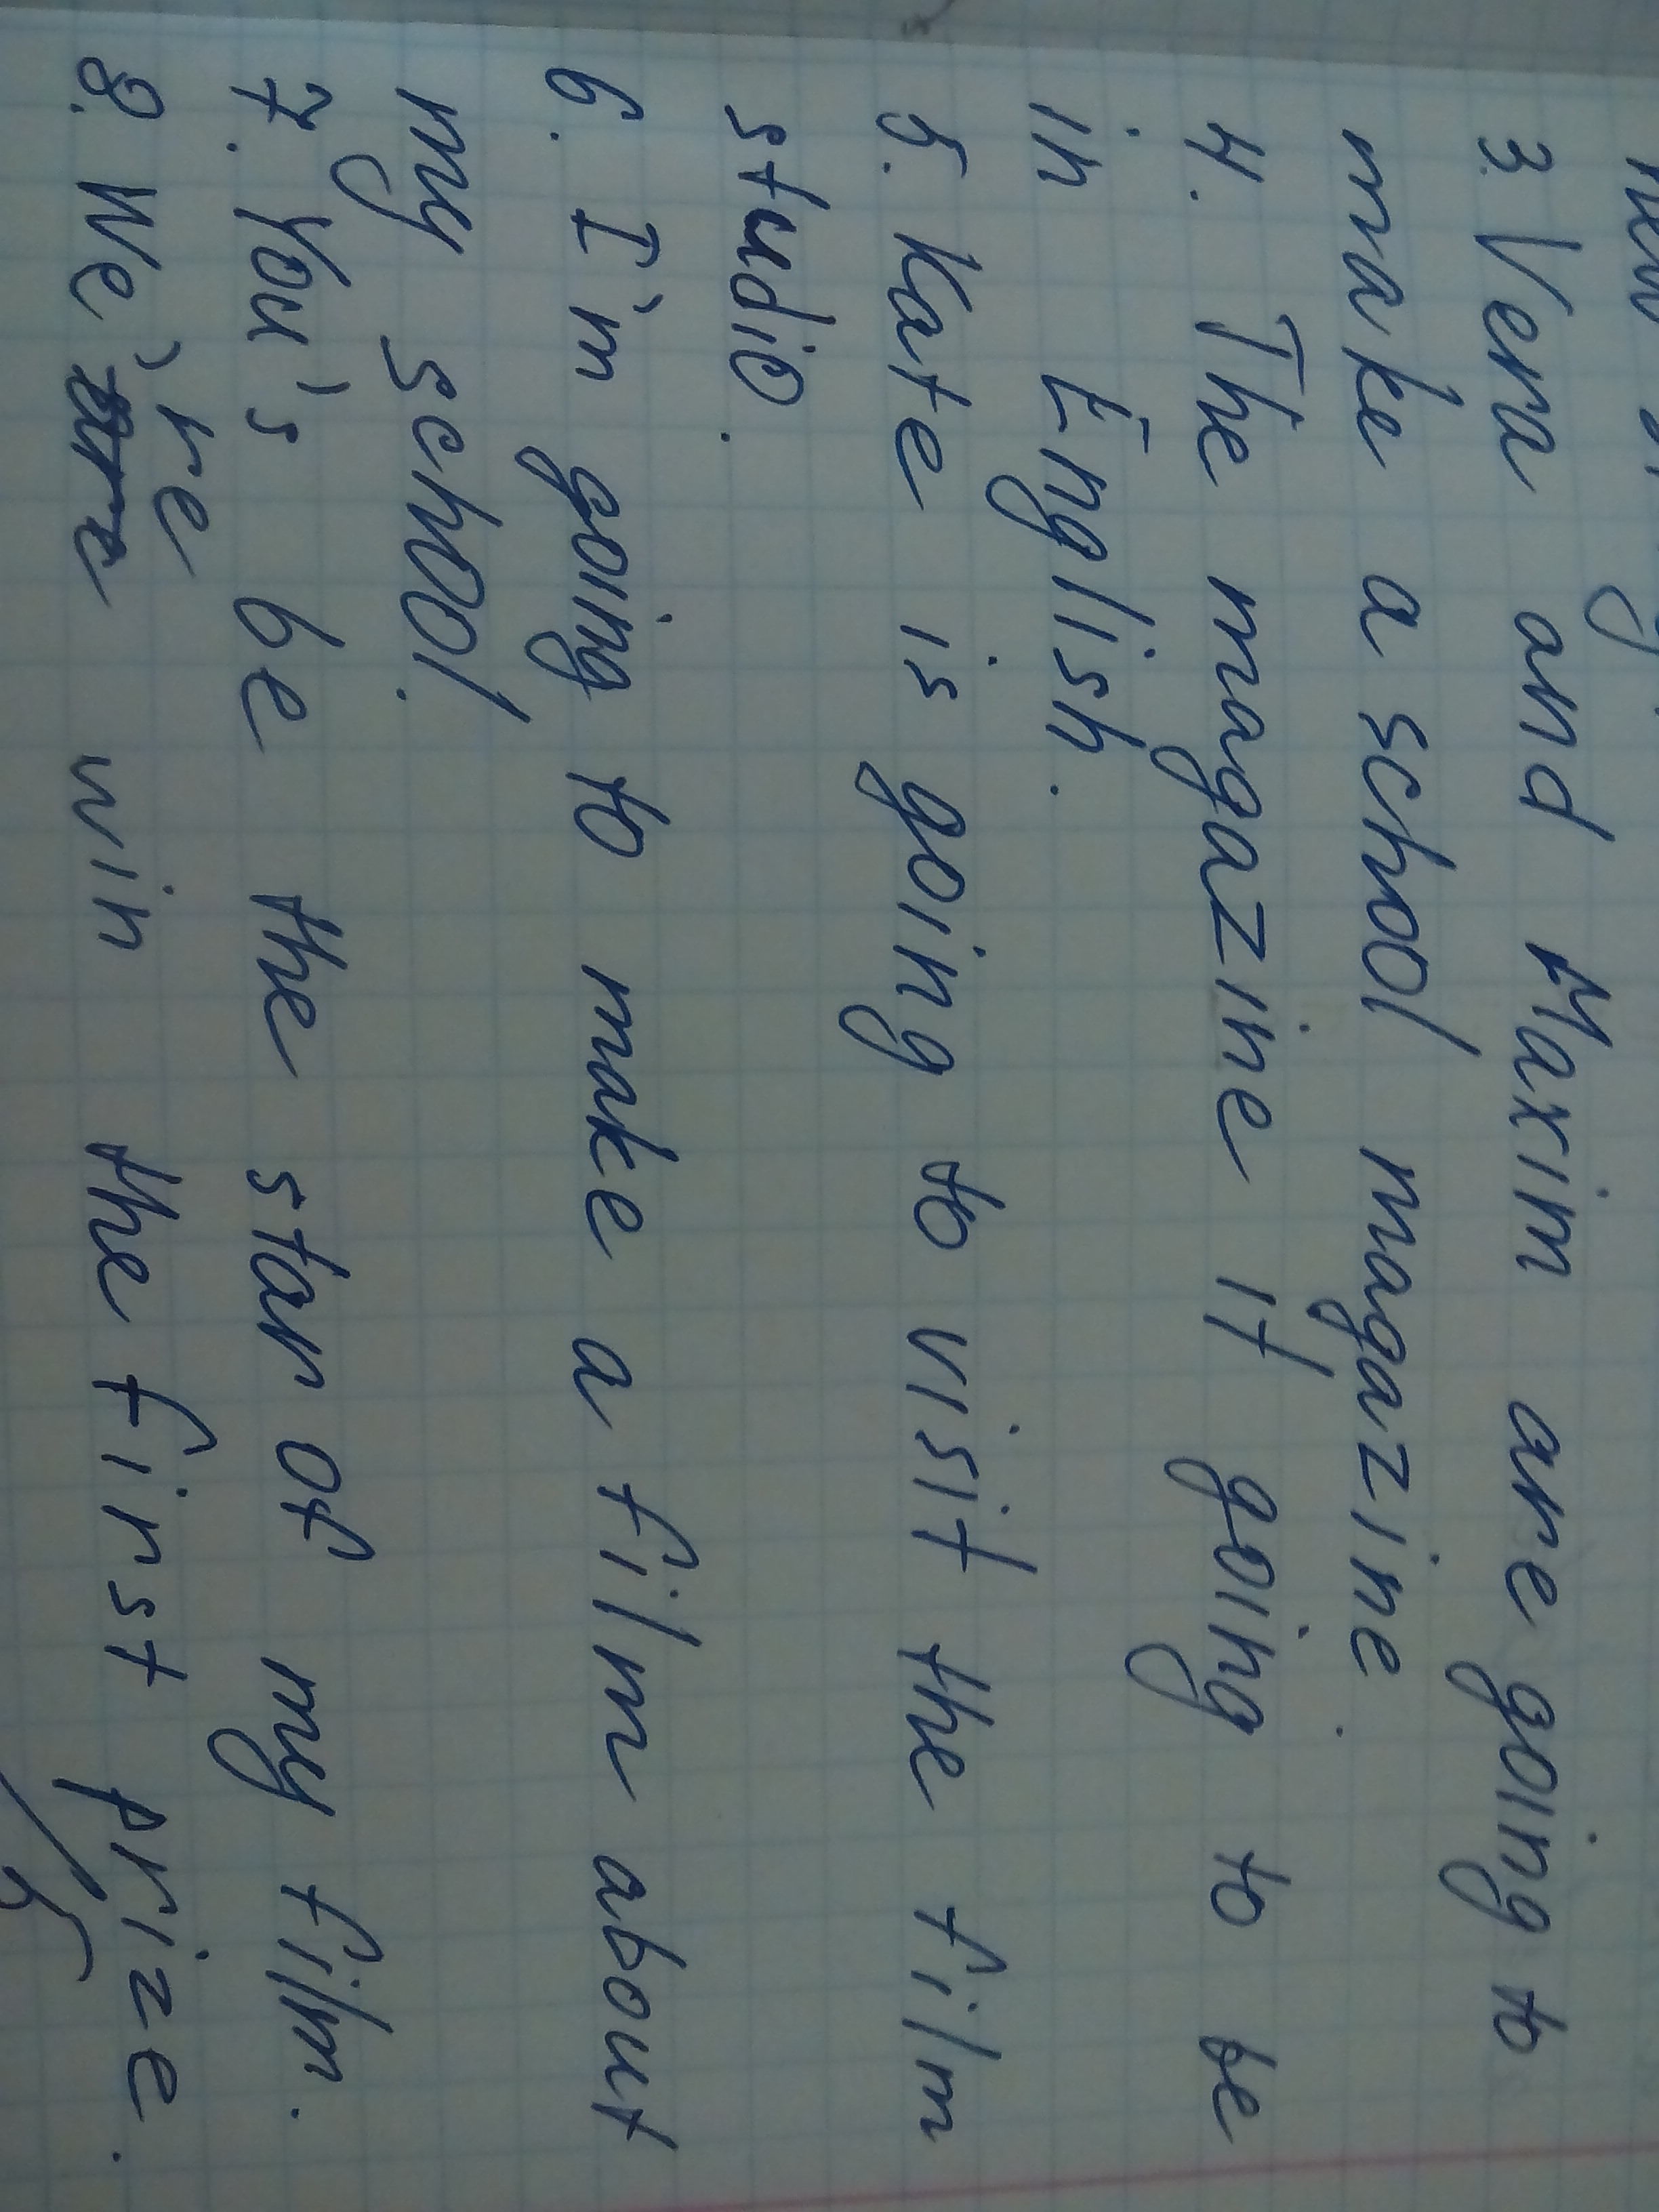 3. Vera and Maxim are going to
make a school magazine.
4. The magazine it going to be
in English.
5. Kate is going to visit the film
studio.
6. I'm going to make a film about
my school.
7. You's be the star of my film.
8. We're win the first prize.